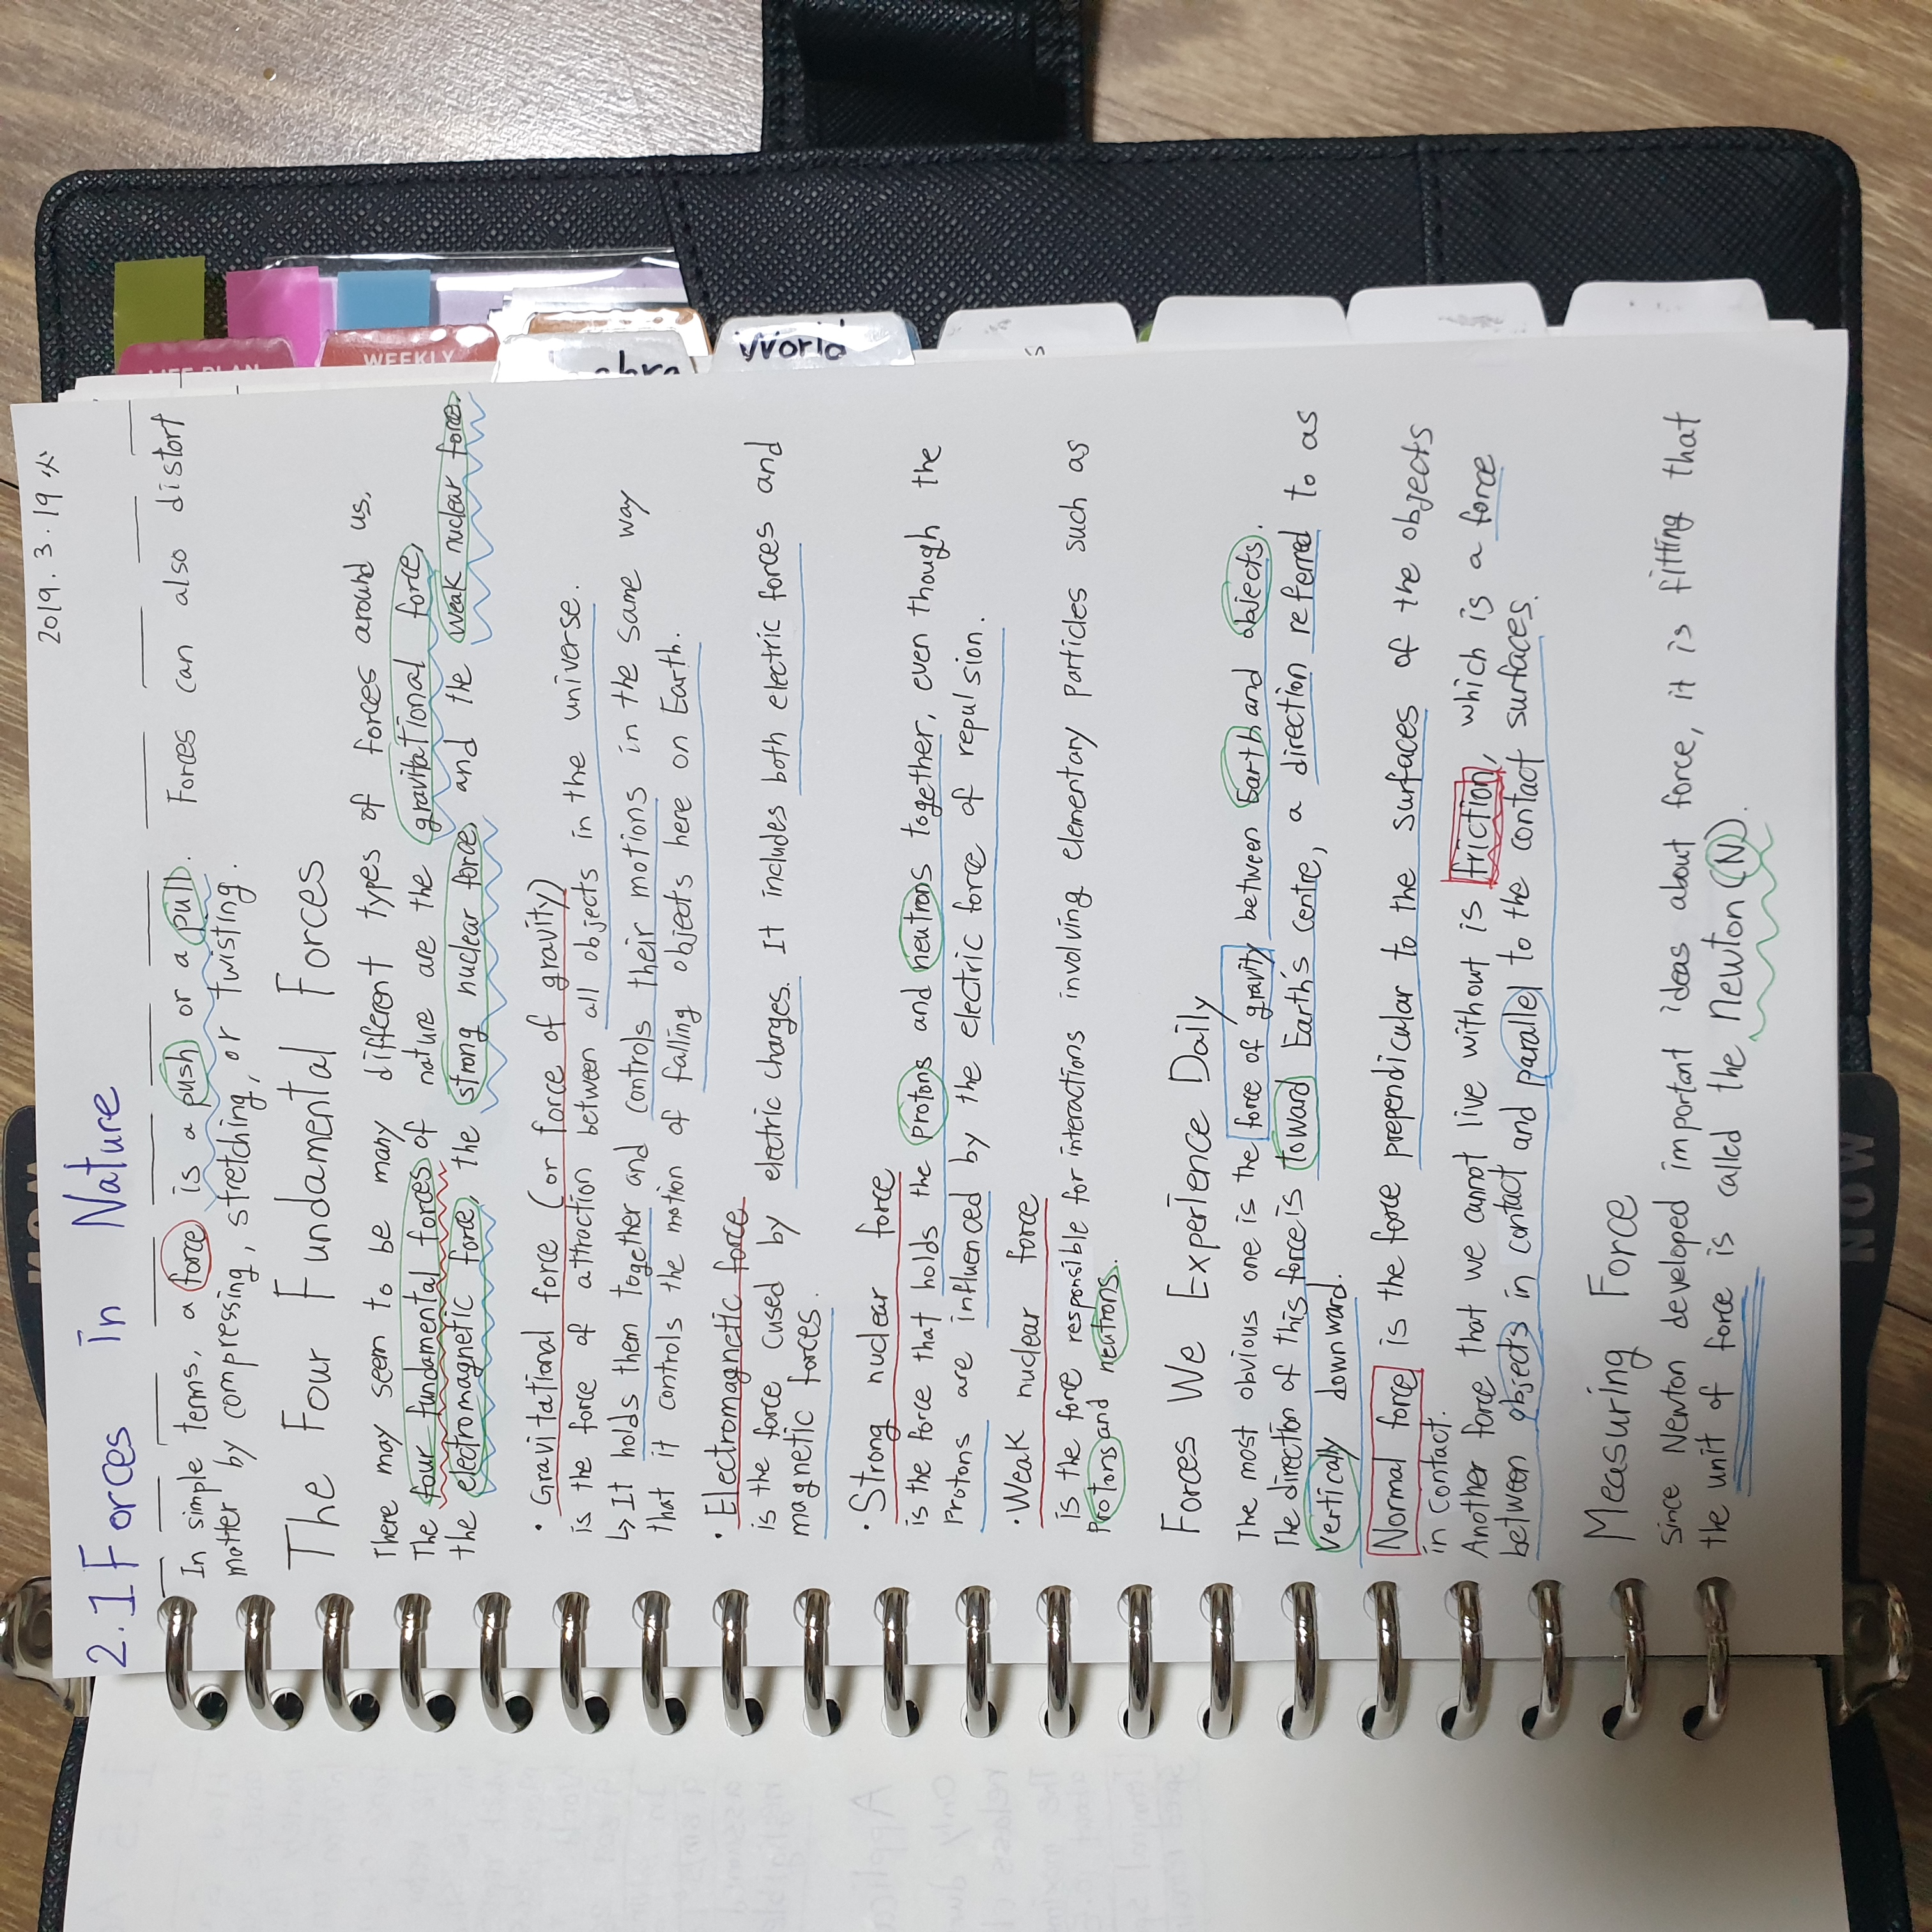 2019. 3. 19 火
2.1 Forces in Nature
In simple terms, a force is a push or a pull. Forces can also distort
matter by compressing, stretching, or twisting.
The Four Fundamental Forces
There may seem to be many different types of forces around us.
The four fundamental forces of nature are the gravitational force,
the electromagnetic force, the strong nuclear force, and the weak nuclear force.
· Gravitational force (or force of gravity)
is the force of attraction between all objects in the universe.
↳ It holds them together and controls their motions in the same way
that it controls the motion of falling objects here on Earth.
· Electromagnetic force
is the force cused by electric charges. It includes both electric forces and
magnetic forces.
· Strong nuclear force
is the force that holds the protons and neutrons together, even though the
Protons are influenced by the electric force of repulsion.
· Weak nuclear force
is the force responsible for interactions involving elementary particles such as
protons and neutrons.
Forces We Experience Daily
The most obvious one is the force of gravity between Earth and objects.
The direction of this force is toward Earth's centre, a direction referred to as
vertically downward.
Normal force is the force prependicular to the surfaces of the objects
in contact.
Another force that we cannot live without is friction, which is a force
between objects in contact and parallel to the contact surfaces.
Measuring Force
Since Newton developed important ideas about force, it is fitting that
the unit of force is called the newton (N).
WEEKLY
World
NOW